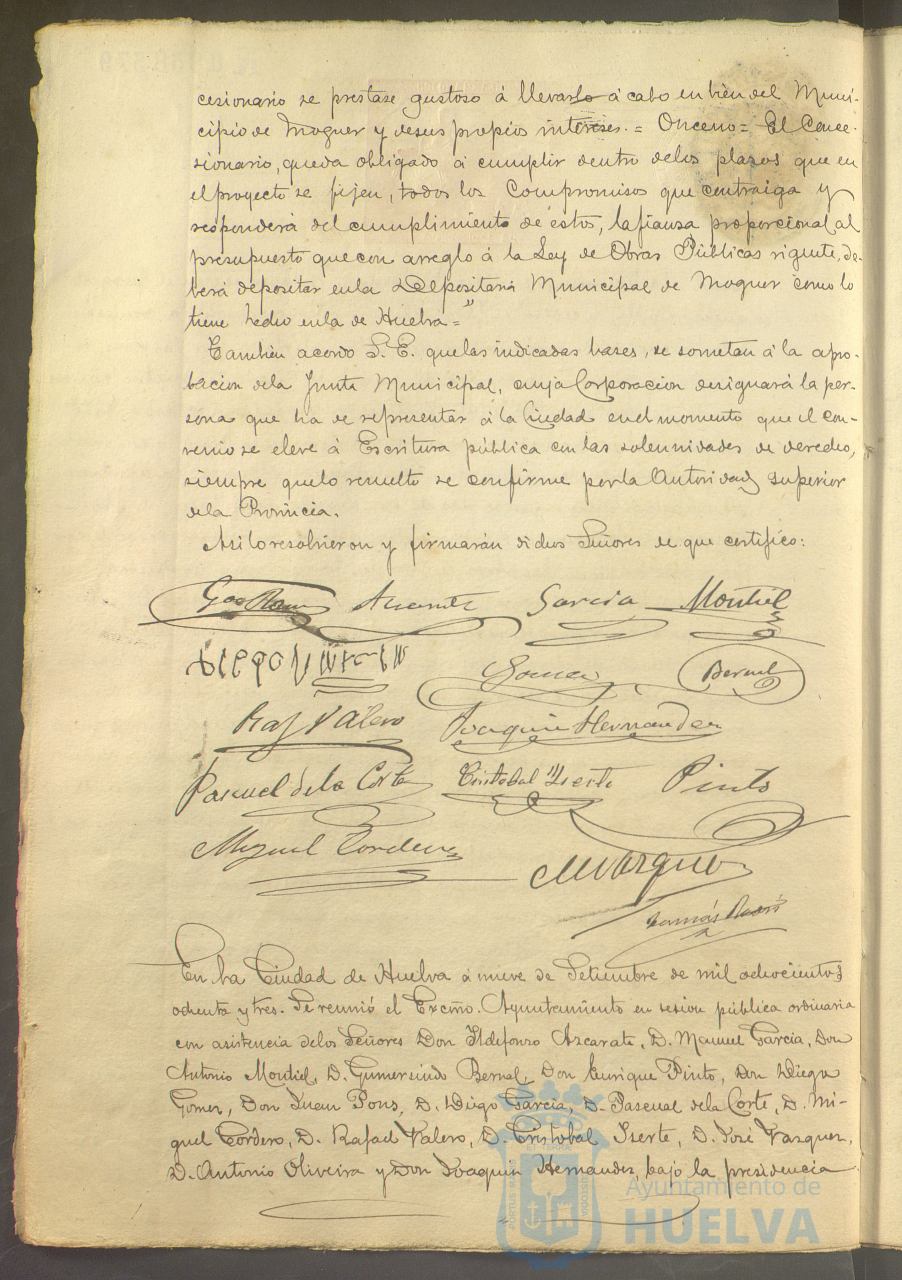 cesionario se prestase gustoso á llevarlo á cabo en bien del Muni-
cipio de Moguer y de sus propios intereses. = Onceno = El Conce-
sionario, queda obligado á cumplir dentro de los plazos que en
el proyecto se fijen, todos los Compromisos que contraiga y
responderá del cumplimiento de éstos, la fianza proporcional al
presupuesto que con arreglo á la Ley de Obras Públicas vigente, de-
berá depositar en la Depositaria Municipal de Moguer como lo
tiene hecho en la de Huelva = "
Tambien acordo S. E. que las indicadas bases, se sometan á la apro-
bacion de la Junta Municipal, cuya Corporacion designará la per-
sona que ha de representar á la Ciudad en el momento que el con-
venio se eleve á Escritura pública con las solemnidades de derecho,
siempre que lo resuelto se confirme por la Autoridad superior
de la Provincia.
Asi lo resolvieron y firmarán dichos Señores de que certifico:
Azcarate Garcia Montiel
Diego Garcia Gomez Bernal
Raf Valero Joaquin Hernandez
Pascual de la Corte Cristobal Yserte Pinto
Miguel Cordero
M Vazquez
Tomás
En la Ciudad de Huelva á nueve de Setiembre de mil ochocientos
ochenta y tres. Se reunió el Excmo. Ayuntamiento en sesion pública ordinaria
con asistencia de los Señores Don Ildefonso Azcarate, D. Manuel Garcia, Don
Antonio Montiel, D. Gumersindo Bernal, Don Enrique Pinto, Don Diego
Gomez, Don Juan Pons, D. Diego Garcia, D. Pascual de la Corte, D. Mi-
guel Cordero, D. Rafael Valero, D. Cristobal Yserte, D. José Vazquez,
D. Antonio Oliveira y Don Joaquin Hernandez, bajo la presidencia
Ayuntamiento de
HUELVA